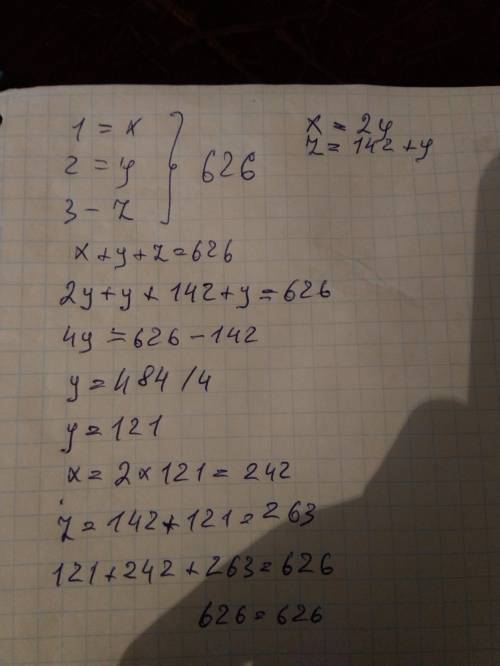 1 = x
2 = y
3 - z
626
x = 2y
z = 142 + y
x + y + z = 626
2y + y + 142 + y = 626
4y = 626 - 142
y = 484 / 4
y = 121
x = 2 × 121 = 242
z = 142 + 121 = 263
121 + 242 + 263 = 626
626 = 626